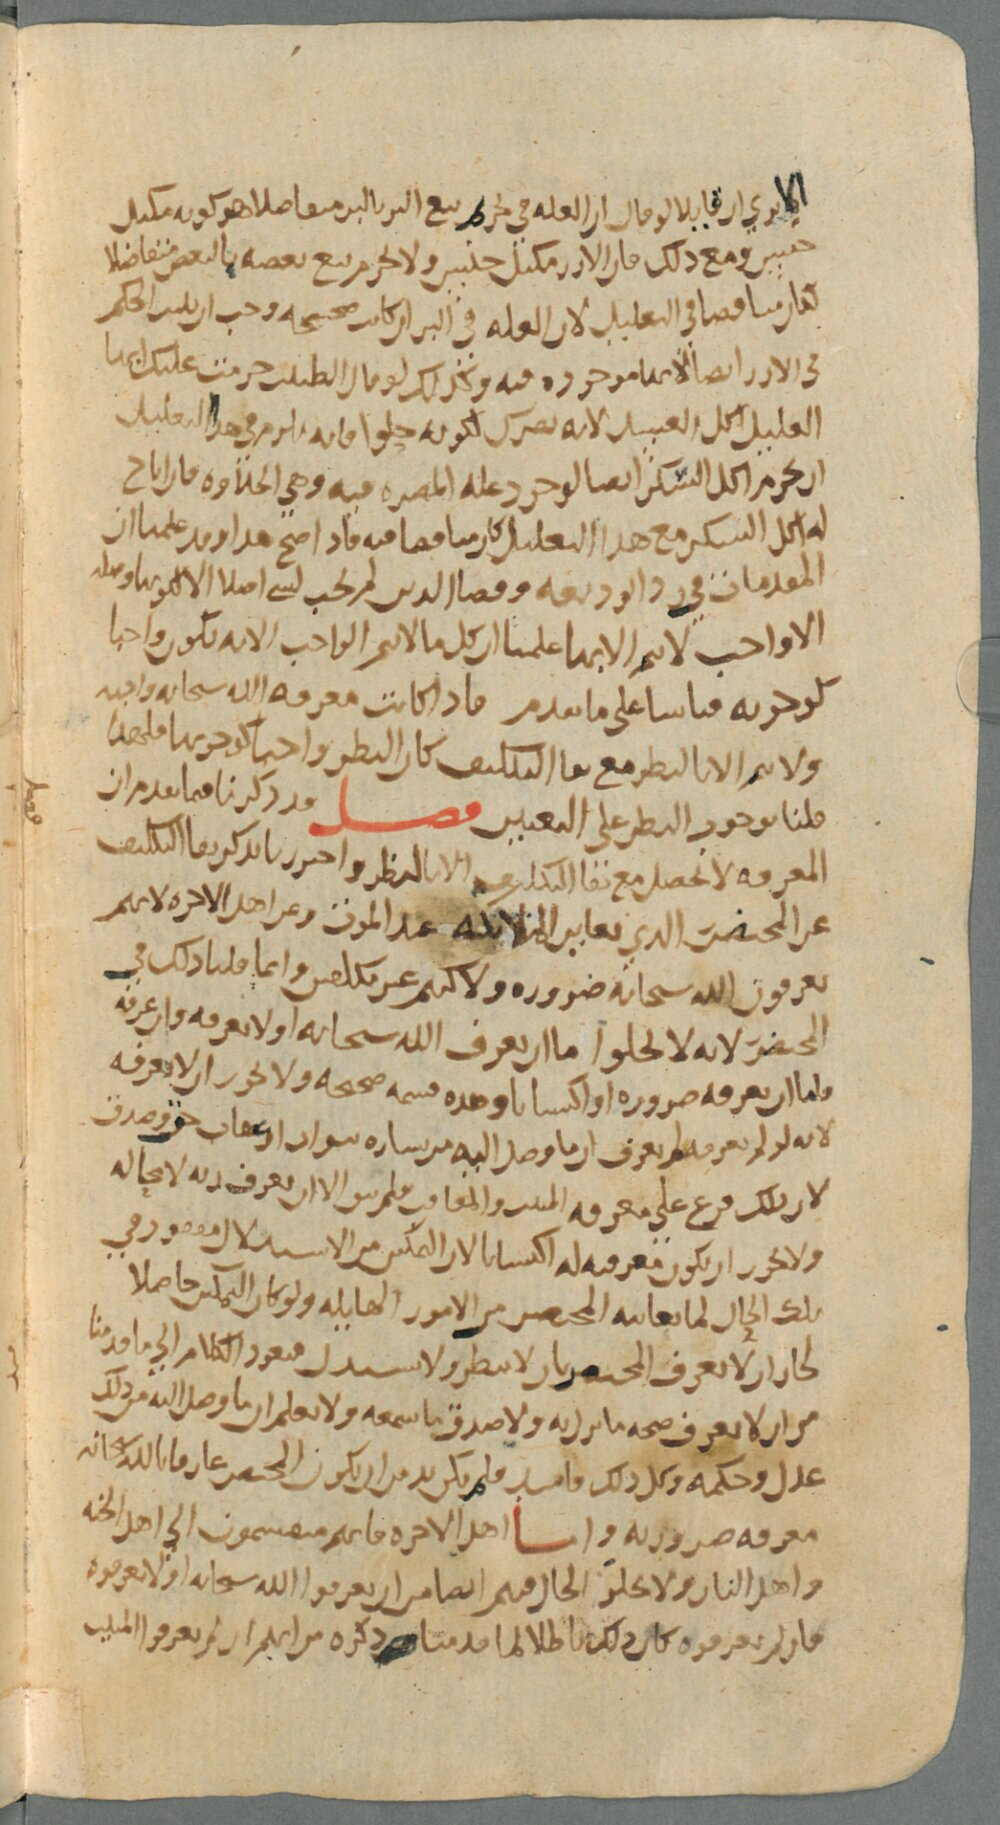 الا يرى ان قايلا لو قال ان العله في تحريم بيع البر بالبر متفاضلا هو كونه مكيل
جنسين ومع ذلك فان الارز مكيل جنسين ولا يحرم بيع بعضه بالبعض متفاضلا
لكان مناقضا في التعليل لان العله في البر ان كانت صحيحه وجب ان يثبت الحكم
في الارز ايضا لانها موجوده فيه وكذلك لو قال الطبيب حرمت عليك ايها
العليل اكل العسل لانه يضرك لكونه حلوا فانه يلزم في هذا التعليل
ان يحرم اكل السكر ايضا لوجود عله المضره فيه وهي الحلاوه فان اباح
له اكل السكر مع هذا التعليل كان مناقضا فيه فاذا صح هذا وقد علمنا ان
المقدمات في رد الوديعه وقضا الدين لم يجب لشي اصلا الا لكونها وصله
الا واجب لا يتم الا بها علمنا ان كل ما لا يتم الواجب الا به يكون واجبا
كوجوبه قياسا على ما تقدم فاذا كانت معرفه الله سبحانه واجبه
ولا يتم الا بالنظر مع بقا التكليف كان النظر واجبا كوجوبها فلهذا
قلنا بوجوب النظر على التعيين فصل قد ذكرنا فيما تقدم ان
المعرفه لا تحصل مع بقا التكليف الا بالنظر واحترزنا بذكر بقا التكليف
عن المحتضر الذي يعاين الملائكه عند الموت وعن اهل الاخره لانهم
يعرفون الله سبحانه ضروره ولاكنهم غير مكلفين وانما قلنا ذلك في
المحتضر لانه لا يخلوا اما ان يعرف الله سبحانه او لا يعرفه وان عرفه
فاما ان يعرفه ضروره او اكتسابا وهذه قسمه صحيحه ولا يجوز ان لا يعرفه
لانه لو لم يعرفه لم يعرف ان ما وصل اليه من بشاره بثواب او عقاب حق وصدق
لان ذلك فرع على معرفه المثيب والمعاقب فلم يبق الا ان يعرف ربه لا محاله
ولا يجوز ان يكون معرفته له اكتسابا لان التمكن من الاستدلال مفقود في
تلك الحال لما يعاينه المحتضر من الامور الهايله ولو كان التمكن حاصلا
لجاز ان لا يعرف المحتضر بان لا ينظر ولا يستدل فيعود الكلام الى ما قدمنا
من ان لا يعرف صحه ما نزل به ولا صدق ما سمعه ولا يعلم ان ما وصل اليه من ذلك
عدل وحكمه وكل ذلك فاسد فلم يكن بد من ان يكون المحتضر عارفا بالله سبحانه
معرفه ضروريه واما اهل الاخره فانهم منقسمون الى اهل الجنه
واهل النار ولا يخلو الحال فيهم ايضا من ان يعرفوا الله سبحانه او لا يعرفوه
فان لم يعرفوه كان ذلك باطلا لما قدمنا ذكره من انهم ان لم يعرفوا المثيب
فصل